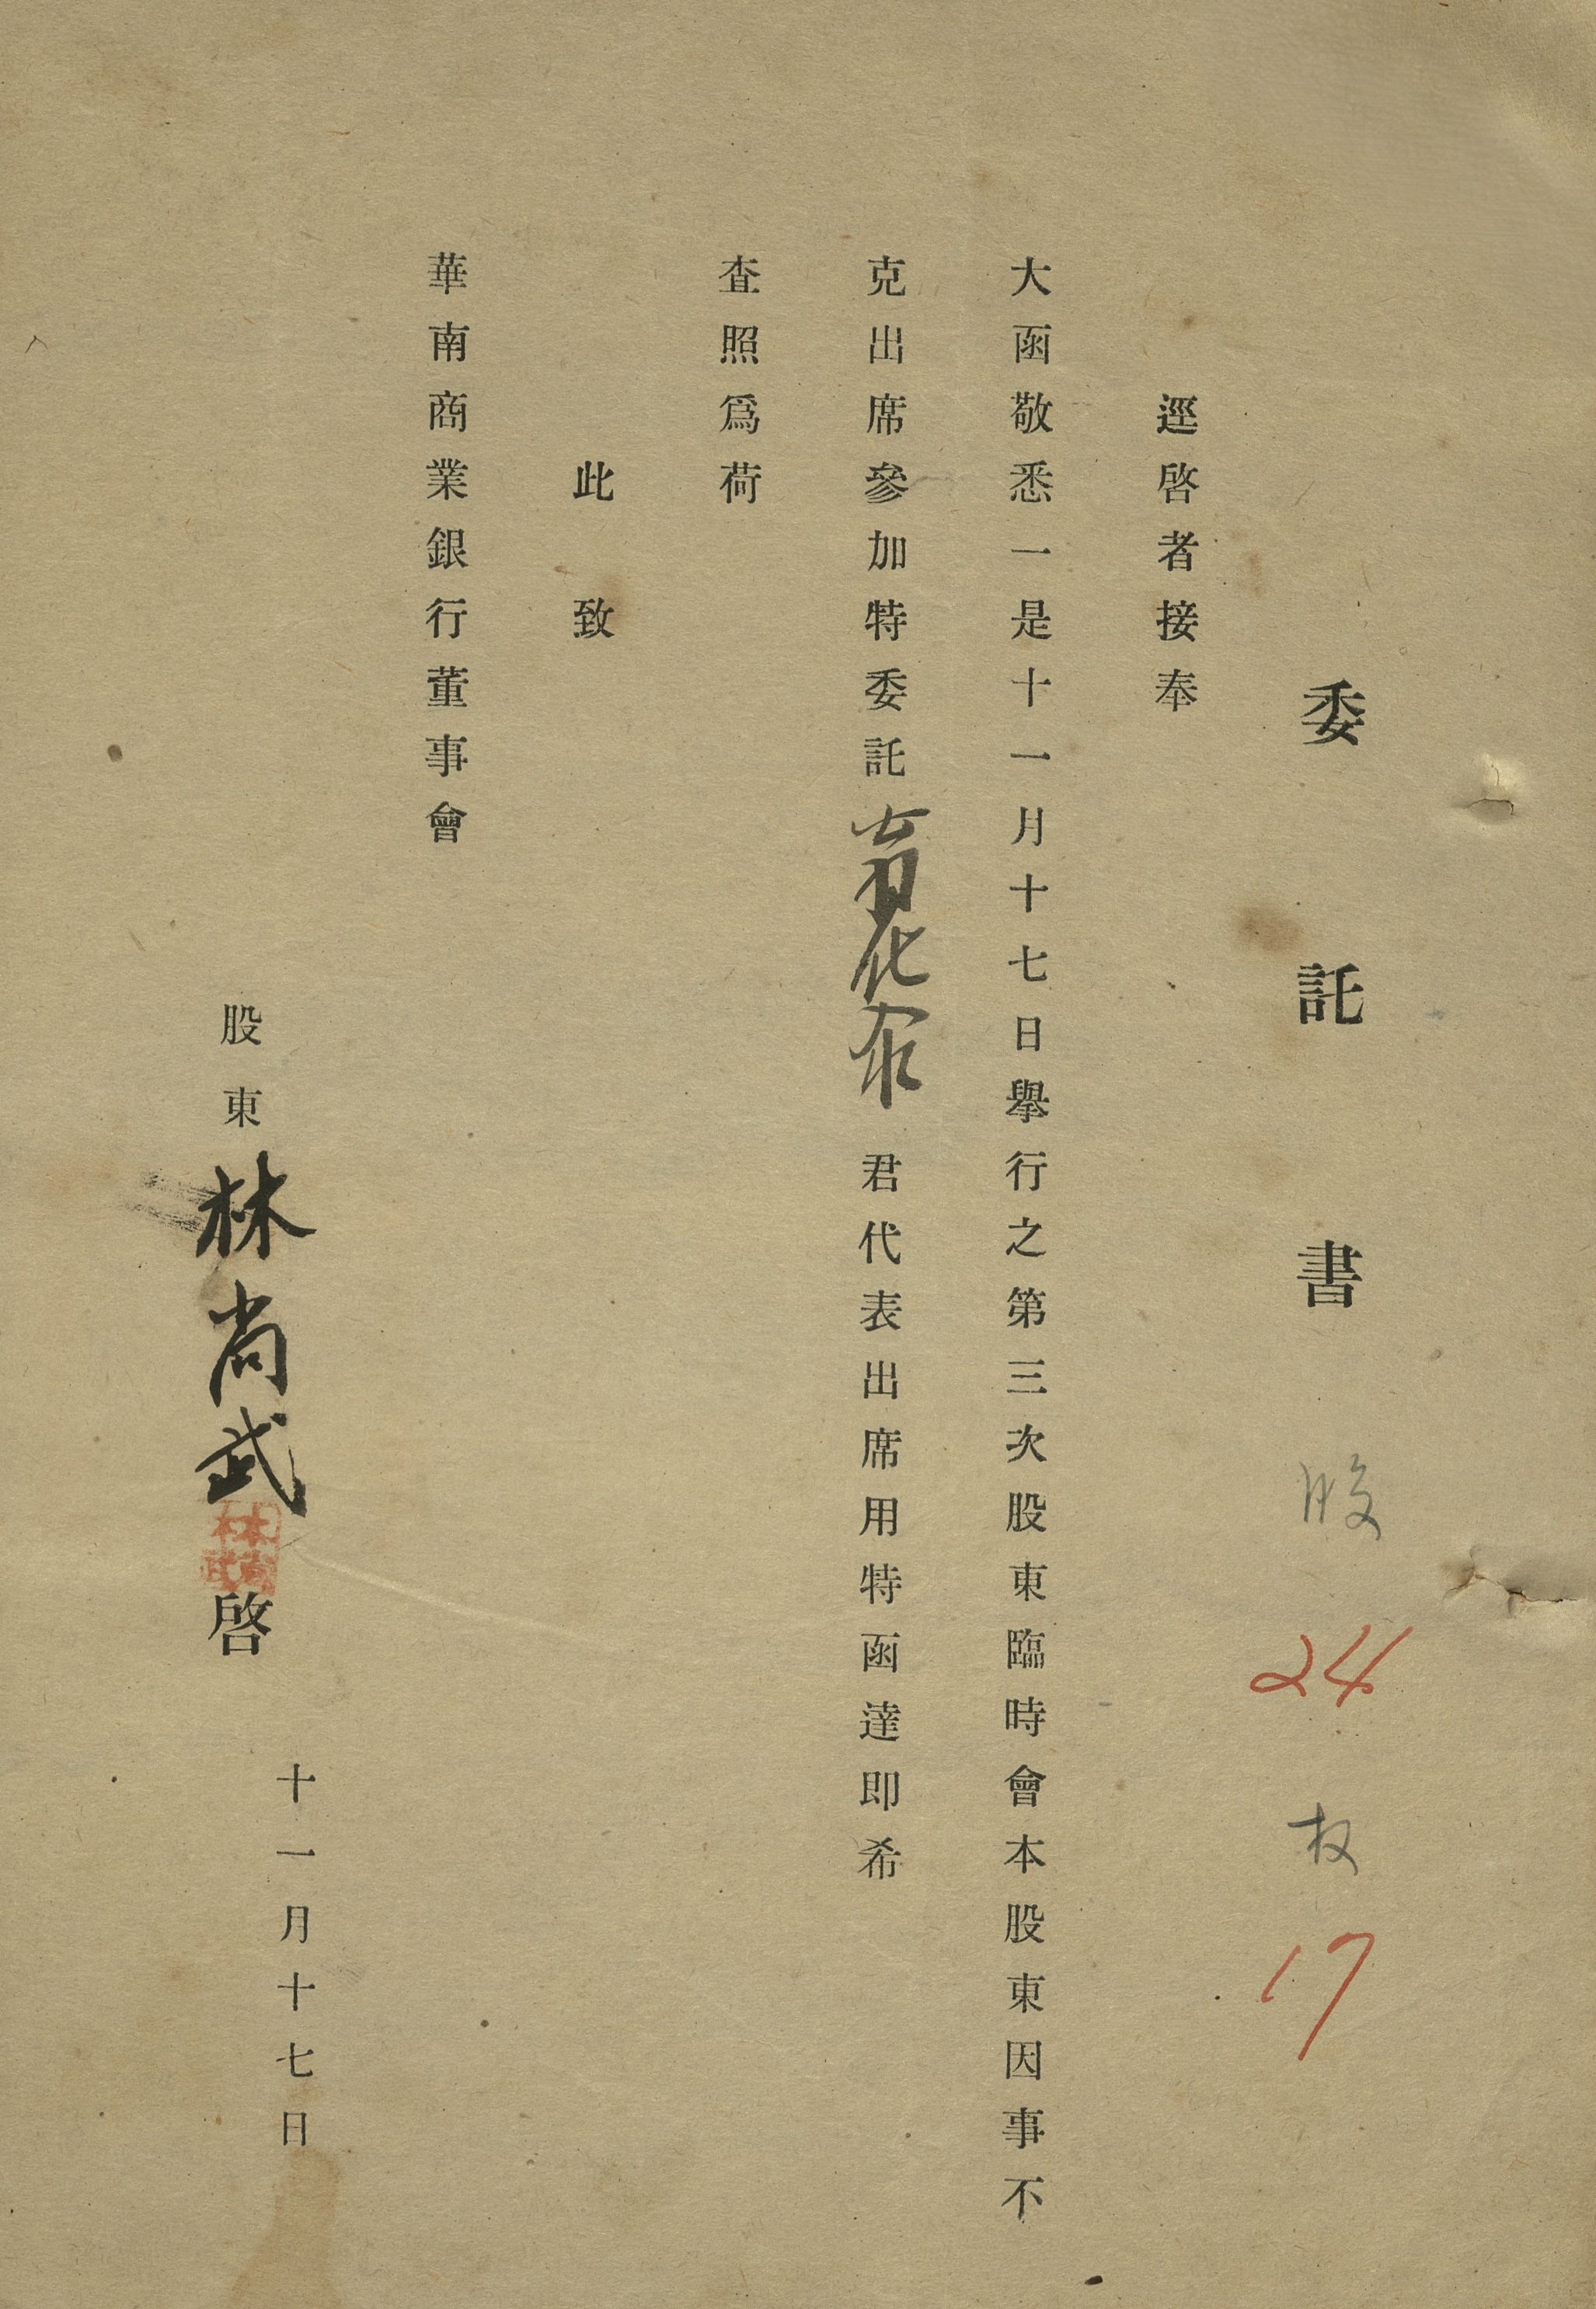 委託書 股 24 权 17
逕啓者接奉
大函敬悉一是十一月十七日舉行之第三次股東臨時會本股東因事不
克出席參加特委託 君代表出席用特函達即希
查照爲荷
此致
華南商業銀行董事會
股東 林尚武 啓
林尚武
十一月十七日